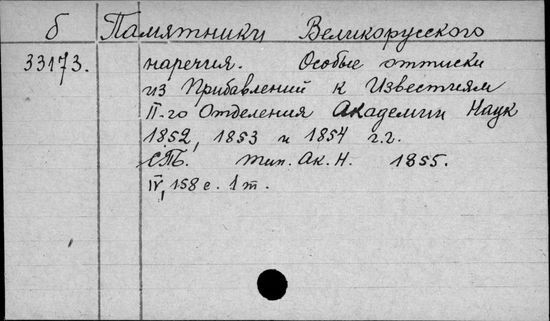 б Памятники Великорусского
33173. наречия. Особые оттиски
из Прибавлений к Известиям
II-го Отделения Академии Наук
1852, 1853 и 1854 г.г.
СПБ. тип. Ак. Н. 1855.
IV, 158 с. 1 т.